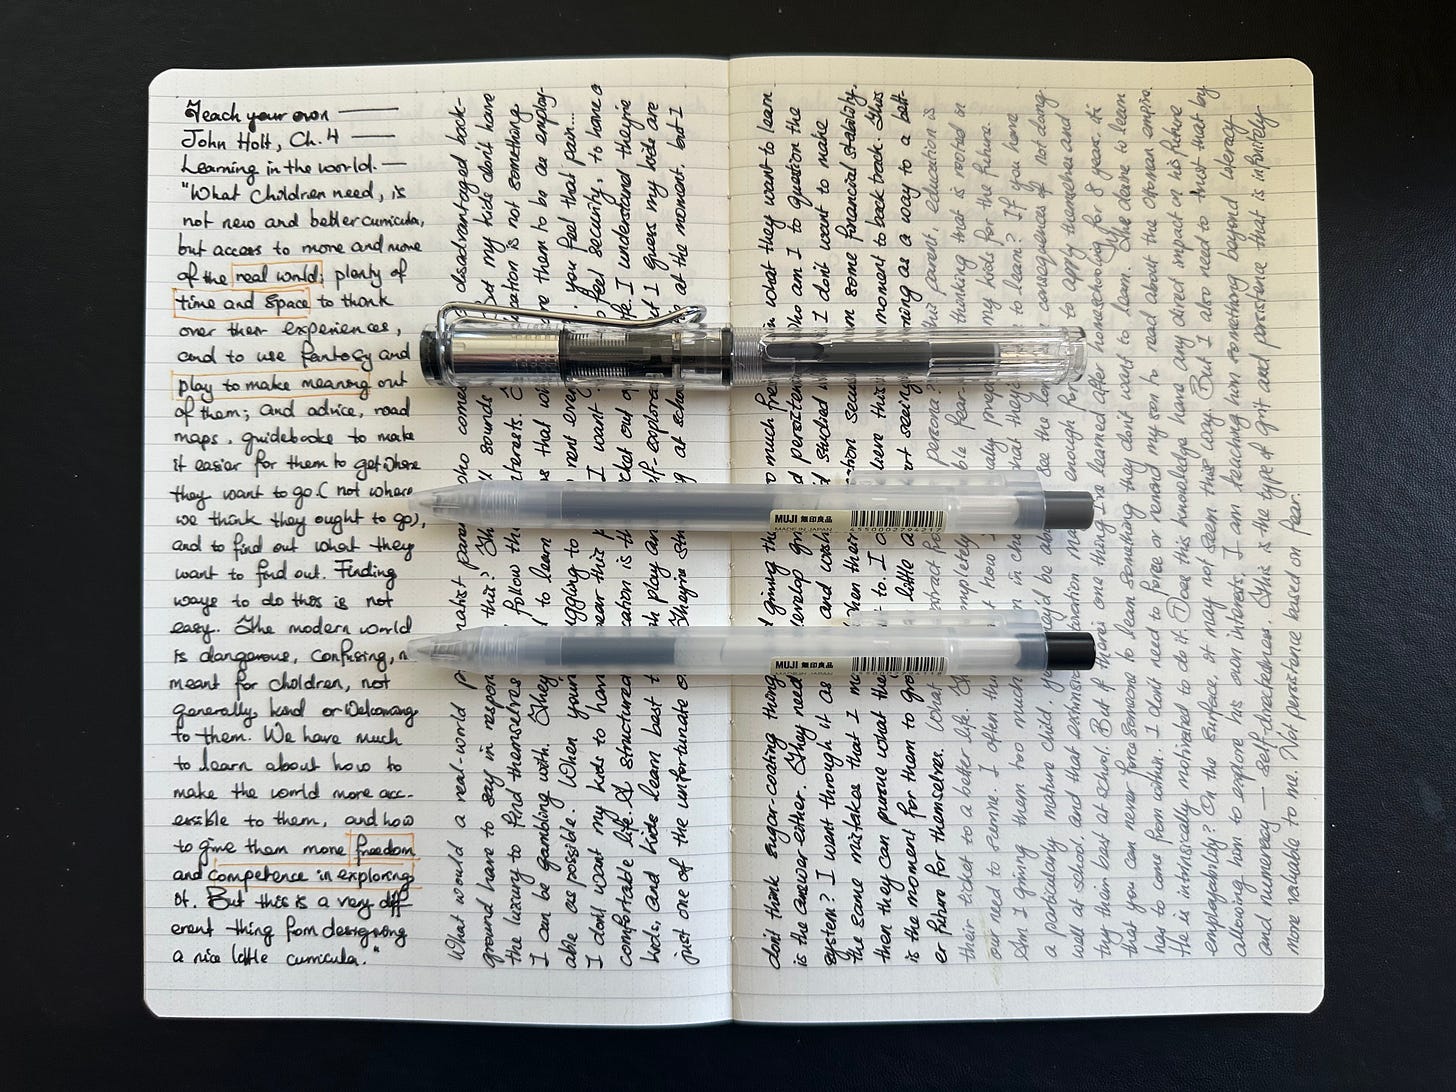 Teach your own —
John Holt, Ch. 4 —
Learning in the world. —
"What Children need, is
not new and better curricula,
but access to more and more
of the real world; plenty of
time and space to think
over their experiences,
and to use fantasy and
play to make meaning out
of them; and advice, road
maps, guidebooks to make
it easier for them to get where
they want to go (not where
we think they ought to go),
and to find out what they
want to find out. Finding
ways to do this is not
easy. The modern world
is dangerous, confusing, n
meant for children, not
generally kind or welcoming
to them. We have much
to learn about how to
make the world more acc-
essible to them, and how
to give them more freedom
and competence in exploring
it. But this is a very diff-
erent thing from designing
a nice little curricula."
What would a real-world p ho comes disadvantaged back-
ground have to say in respon this? but my kids don't have
the luxury to find themselves follow th interests. cation is not something
I can be gambling with. They to learn s that wi re them to be as employ-
able as possible. When your uggling to rent ever you feel that pain...
I don't want my kids to hav near this I want feel security, to have a
comfortable life. A structured cation is th cket out fe. I understand they're
kids, and kids learn best t h play an lf-explora but I guess my kids are
just one of the unfortunate o They're stu g at schoo at the moment, but I
don't think sugar-coating thing giving th o much fre in what they want to learn
is the answer either. They need develop gri d persisten Who am I to question the
system? I want through it as and wish studied I don't want to make
the same mistakes that I m When their ation secu m some financial stability.
then they can pursue what the t to. I here this moment to back track. This
is the moment for them to gro little a rt seeing ning as a way to a bett-
er future for themselves. What tract persona? this parent, education is
their ticket to a better life. Th mpletely ble fear- thinking that is rooted in
our need to survive. I often th t how ually prepa my kids for the future.
Am I giving them too much in ch hat they to learn? If you have
a particularly mature child, they'd be able see the long consequences of not doing
well at school, and that estimation ma enough for to apply themselves and
try their best at school. But if there's one thing I've learned after homeschooling for 8 years is
that you can never force someone to learn something they don't want to learn. The desire to learn
has to come from within. I don't need to force or remind my son to read about the Ottoman empire.
He is intrinsically motivated to do it. Does this knowledge have any direct impact on his future
employability? On the surface, it may not seem this way. But I also need to trust that by
allowing him to explore his own interests, I am teaching him something beyond literacy
and numeracy — self-directedness. This is the type of grit and persistence that is infinitely
more valuable to me. Not persistence based on fear.
MUJI 無印良品
MADE IN JAPAN
MUJI 無印良品
MADE IN JAPAN